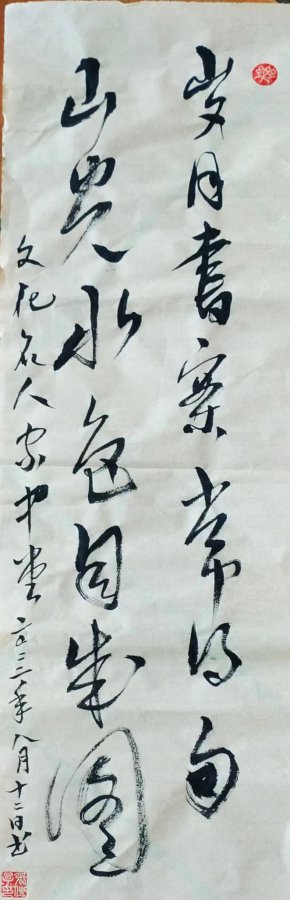 岁月书案常得句
山光水色自成图
文化名人家中堂 二〇二三年八月十二日书